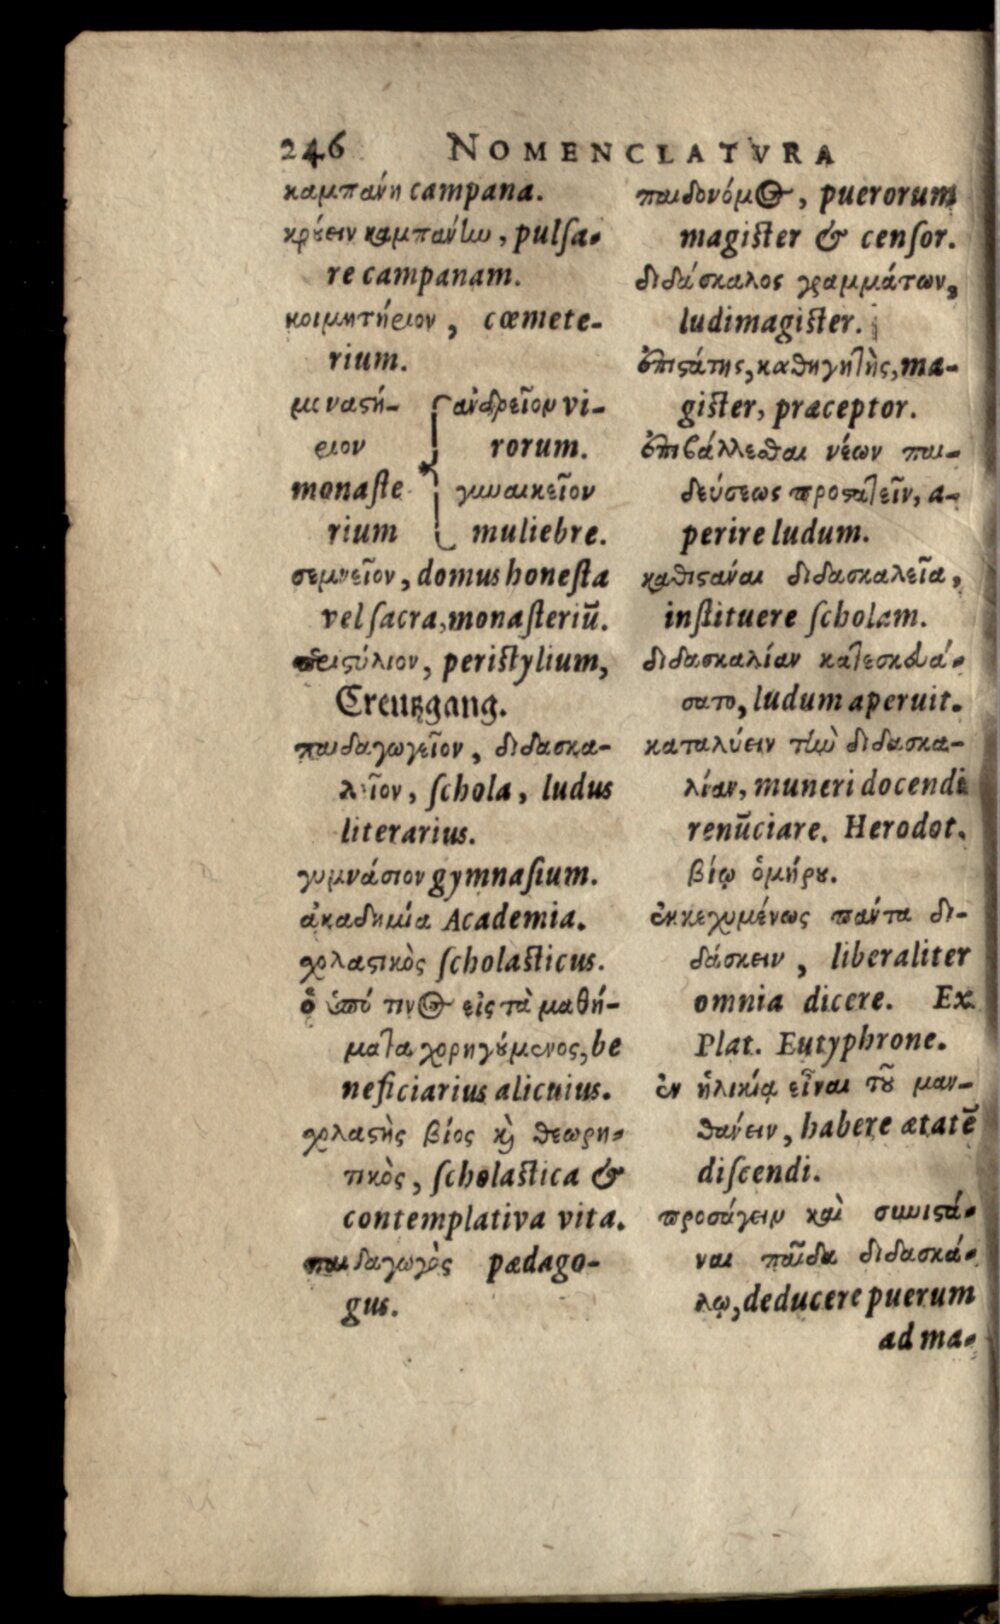 246 NOMENCLATVRA
καμπάνη campana.
κρȣ́ειν καμπάνην, pulſa-
re campanam.
κοιμητήριον, cœmete-
rium.
μοναϛή- ἀνδρεῖον vi-
ριον rorum.
monaſte γυναικεῖον
rium muliebre.
σεμνεῖον, domus honeſta
vel ſacra, monaſteriū.
περιϛύλιον, periſtylium,
Creutzgang.
παιδαγωγεῖον, διδασκα-
λεῖον, ſchola, ludus
literarius.
γυμνάσιον gymnaſium.
ἀκαδημία Academia.
χολαϛικὸς ſcholaſticus.
ὃ ὑπό τινος εἰς τὰ μαθή-
ματα χορηγȣ́μενος, be
neficiarius alicuius.
χολαϛὴς βίος ϗ̀ θεωρη-
τικὸς, ſcholaſtica &
contemplativa vita.
παιδαγωγὸς pædago-
gus.
παιδονόμος, puerorum
magiſter & cenſor.
διδάσκαλος γραμμάτων,
ludimagiſter.
ἐπιϛάτης, καθηγητὴς, ma-
giſter, præceptor.
ἐπιβάλλεσθαι νέων παι-
δεύσεως προϛατεῖν, a-
perire ludum.
καθιϛάναι διδασκαλεῖα,
inſtituere ſcholam.
διδασκαλίαν κατεσκευά-
σατο, ludum aperuit.
καταλύειν τὴν διδασκα-
λίαν, muneri docendi
renūciare. Herodot.
βίῳ ὁμήρȣ.
ἐκκεχυμένως πάντα δι-
δάσκειν, liberaliter
omnia dicere. Ex
Plat. Eutyphrone.
ἐν ἡλικίᾳ εἶναι τȣ͂ μαν-
θάνειν, habere ætatē
diſcendi.
προσάγειν καὶ συνιϛά-
ναι παῖδα διδασκά-
λῳ, deducere puerum
ad ma-